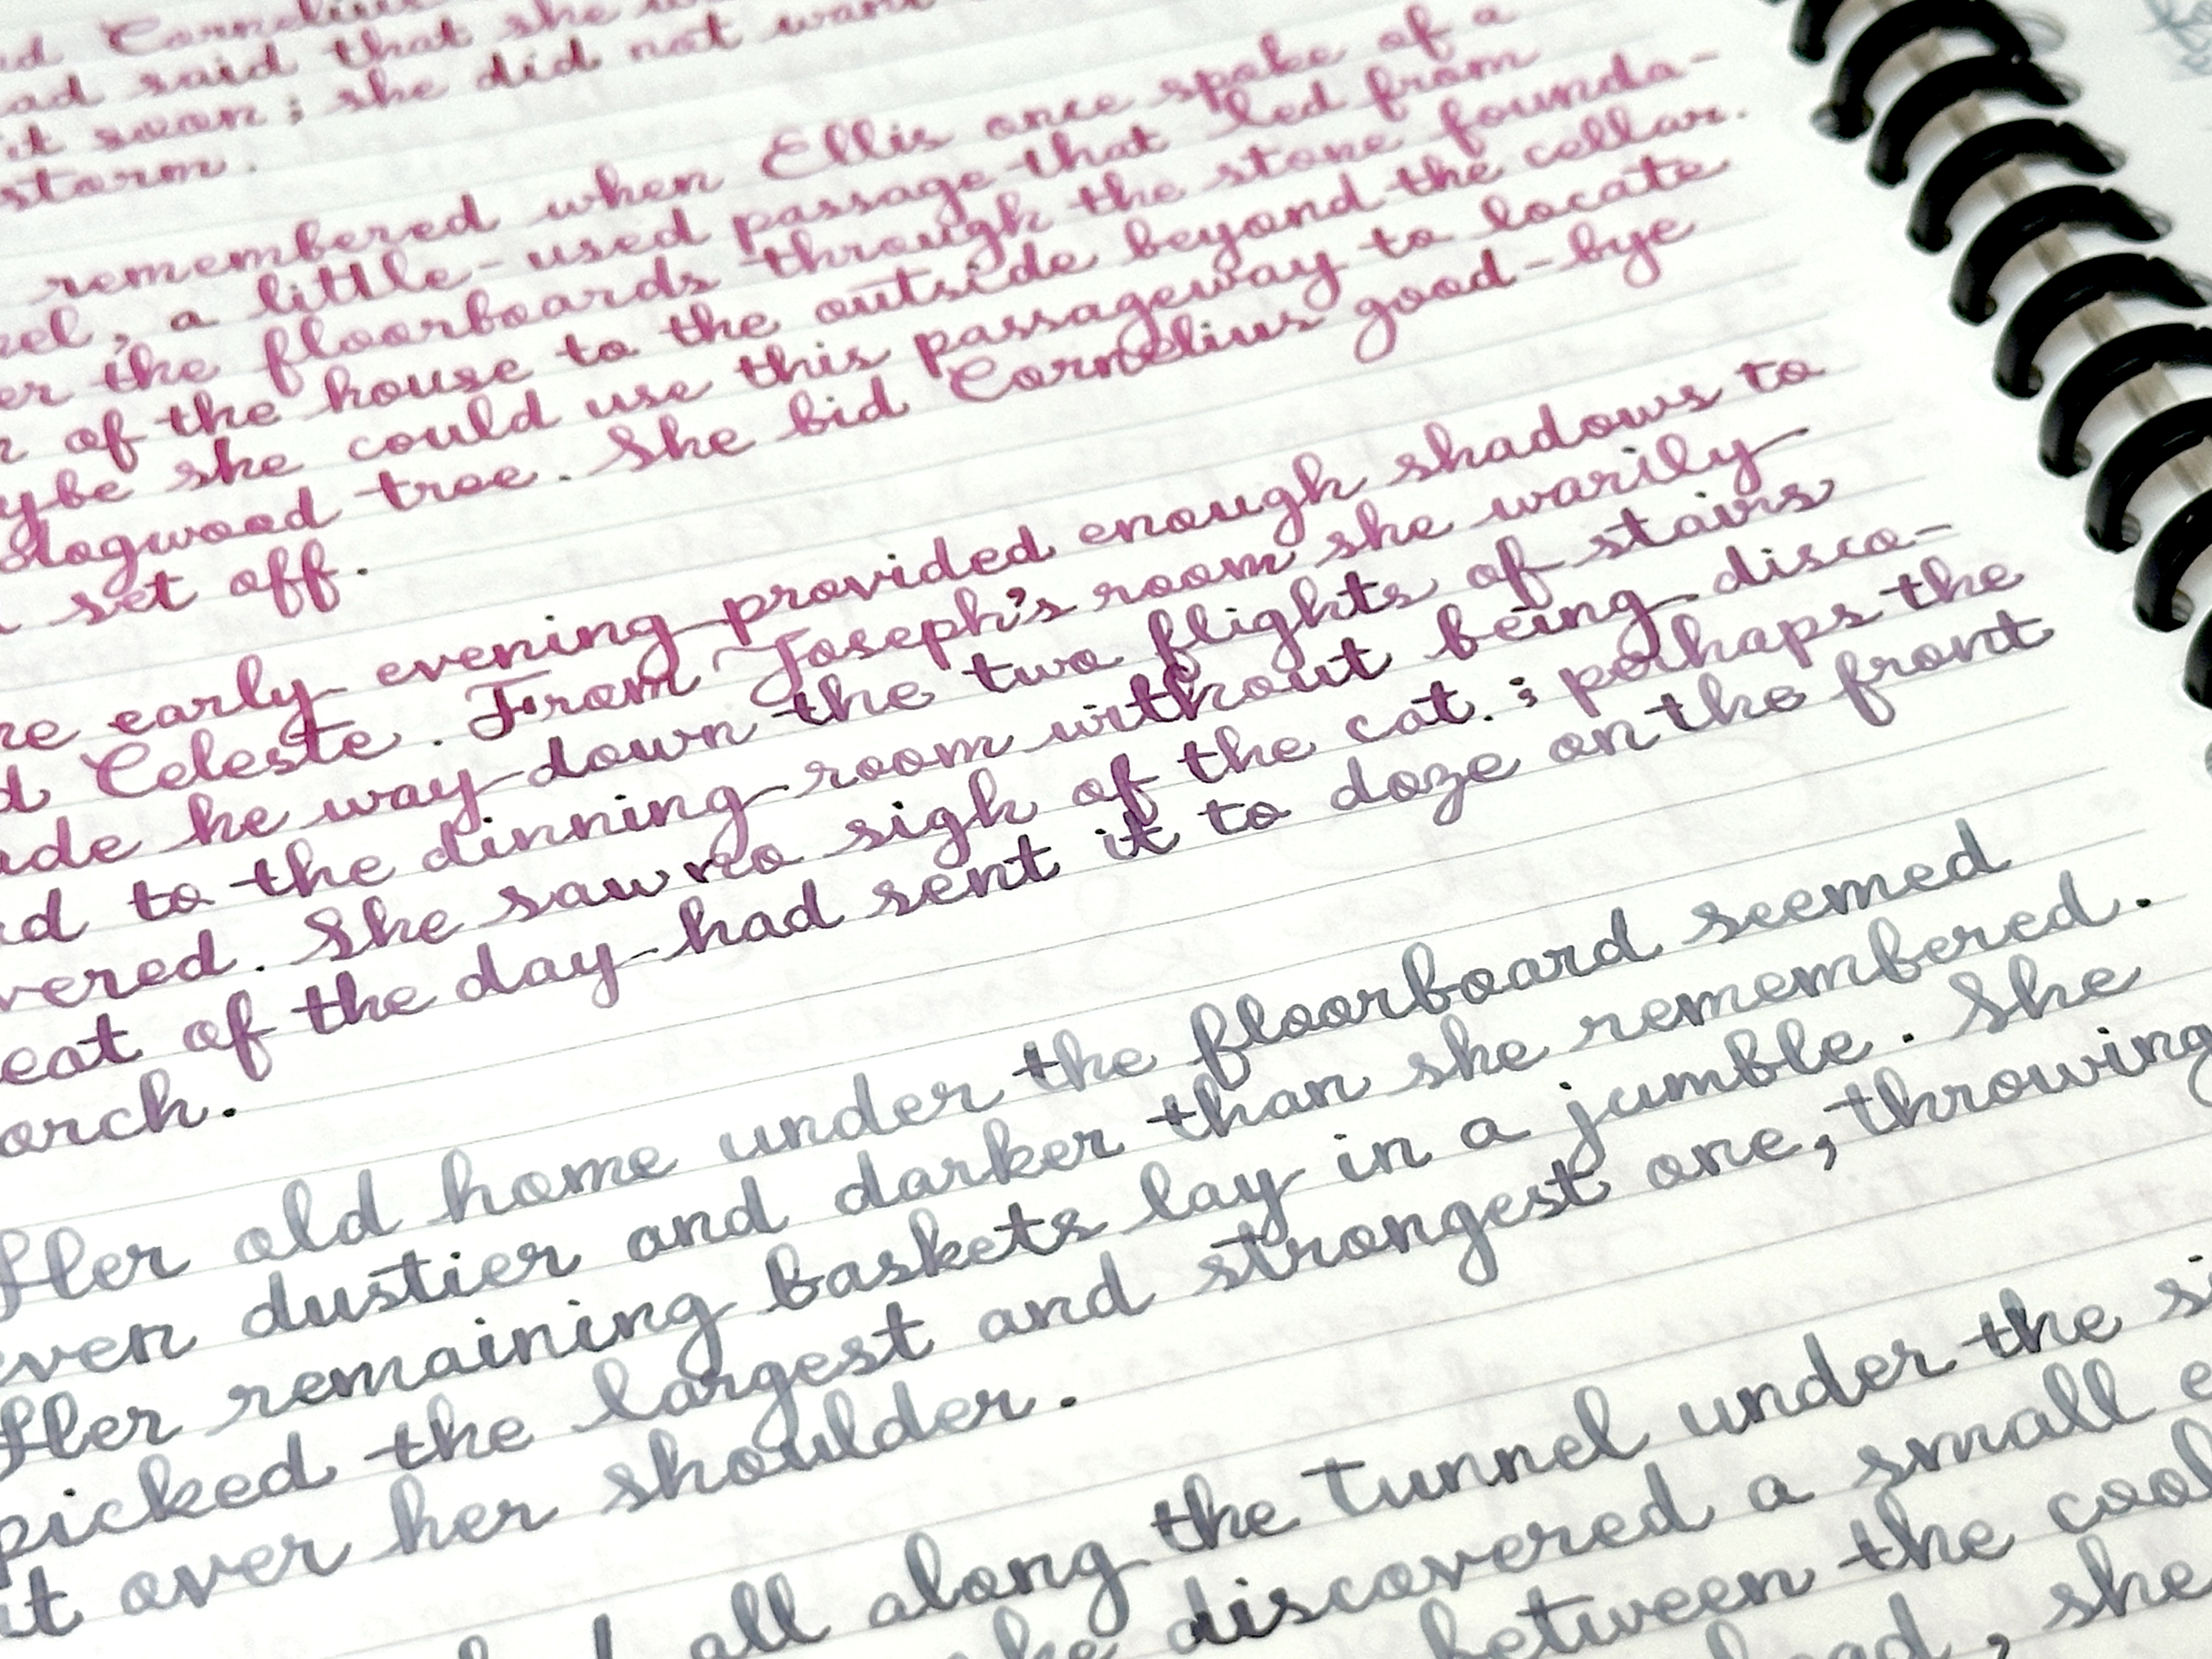 Cornelius
said that she
it soon; she did not want
storm.
remembered when Ellis once spoke of a
nel, a little-used passage that led from
er the floorboards through the stone founda-
n of the house to the outside beyond the cellar.
ybe she could use this passageway to locate
dogwood tree. She bid Cornelius good-bye
set off.
he early evening provided enough shadows to
d Celeste. From Joseph's room she warily
ade he way down the two flights of stairs
nd to the dinning room without being disco-
vered. She saw no sigh of the cat.; perhaps the
eat of the day had sent it to doze on the front
orch.
Her old home under the floorboard seemed
even dustier and darker than she remembered.
Her remaining baskets lay in a jumble. She
picked the largest and strongest one, throwing
it over her shoulder.
all along the tunnel under the si
discovered a small e
between the cool
she